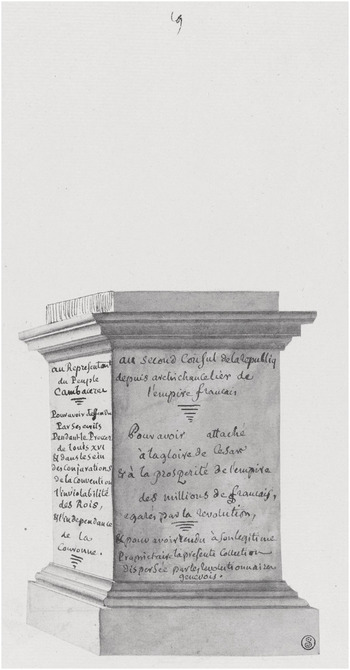 19
au Representant
du Peuple
Cambacerez
Pour avoir deffendu
Par ses ecrits
Pendant le Procez
de louis XVI
& dans le sein
des Conjurations
de la Convention
l'inviolabilité
des Rois,
& l'independance
de la
Couronne.
au second Consul de la republiq
depuis archichancelier de
l'empire francais
Pour avoir attaché
à la gloire de Cesar
& à la prosperité de l'empire
des millions de francais,
egarez par la revolution,
& pour avoir rendu à son legitime
Proprietaire la presente Collection
dispersée par les revolutionnaires
genevois.